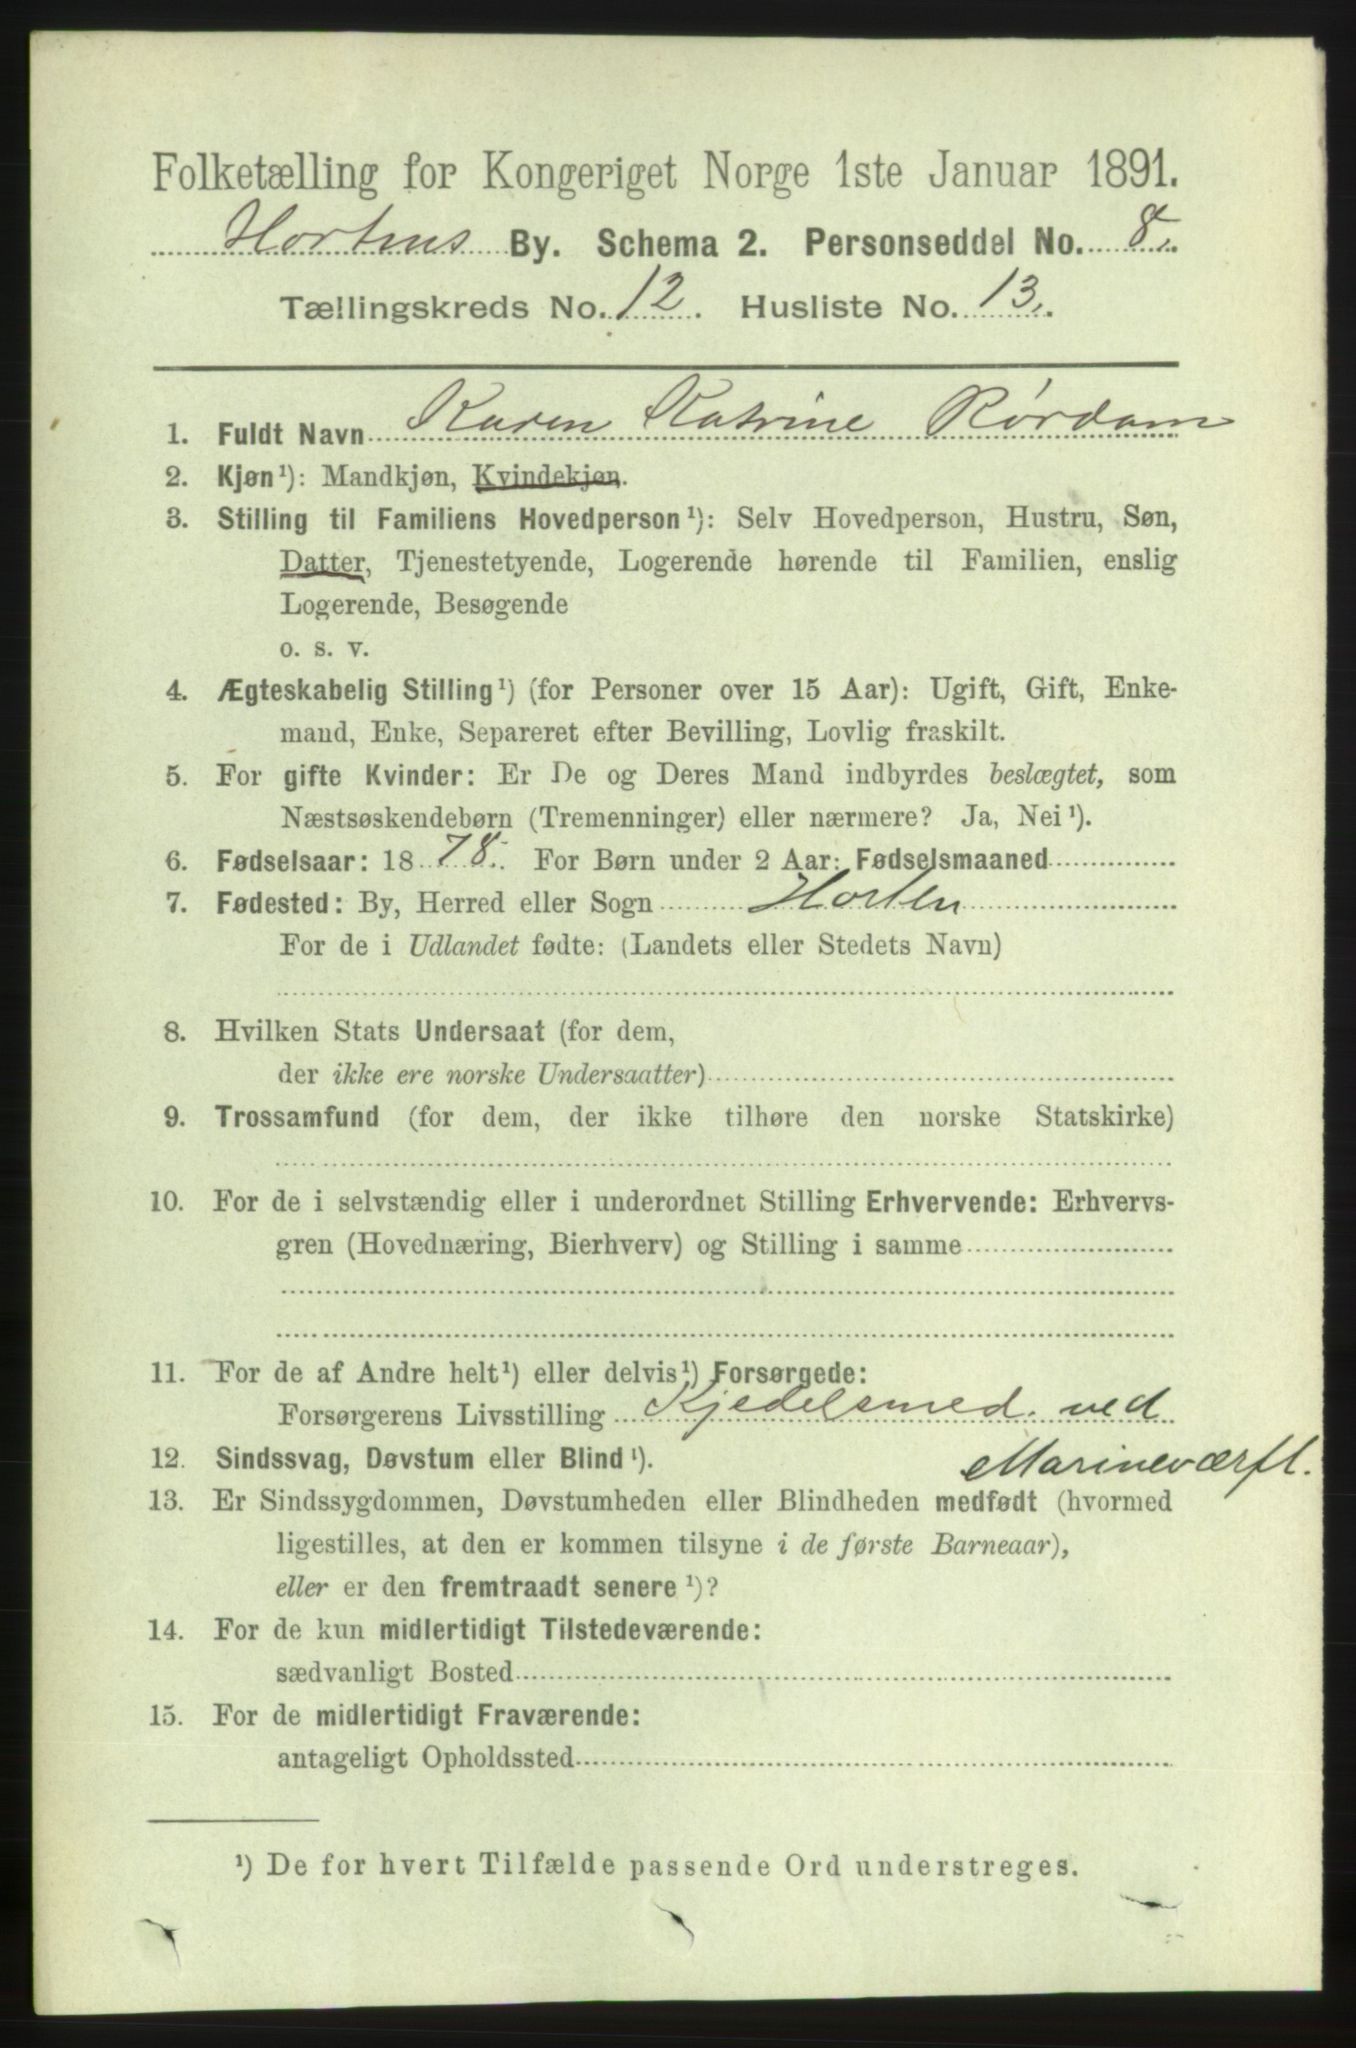 Folketælling for Kongeriget Norge 1ste Januar 1891.
Hortens By. Schema 2. Personseddel No. 8.
Tællingskreds No. 12. Husliste No. 13.
1. Fuldt Navn Karen Katrine Rördam
2. Kjøn¹): Mandkjøn, Kvindekjøn.
3. Stilling til Familiens Hovedperson¹): Selv Hovedperson, Hustru, Søn,
Datter, Tjenestetyende, Logerende hørende til Familien, enslig
Logerende, Besøgende
o. s. v.
4. Ægteskabelig Stilling¹) (for Personer over 15 Aar): Ugift, Gift, Enke-
mand, Enke, Separeret efter Bevilling, Lovlig fraskilt.
5. For gifte Kvinder: Er De og Deres Mand indbyrdes beslægtet, som
Næstsøskendebørn (Tremenninger) eller nærmere? Ja, Nei¹).
6. Fødselsaar: 1878. For Børn under 2 Aar: Fødselsmaaned
7. Fødested: By, Herred eller Sogn Horten
For de i Udlandet fødte: (Landets eller Stedets Navn)
8. Hvilken Stats Undersaat (for dem,
der ikke ere norske Undersaatter)
9. Trossamfund (for dem, der ikke tilhøre den norske Statskirke)
10. For de i selvstændig eller i underordnet Stilling Erhvervende: Erhvervs-
gren (Hovednæring, Bierhverv) og Stilling i samme
11. For de af Andre helt¹) eller delvis¹) Forsørgede:
Forsørgerens Livsstilling Kjedelsmed. ved
Marineværft.
12. Sindssvag, Døvstum eller Blind¹).
13. Er Sindssygdommen, Døvstumheden eller Blindheden medfødt (hvormed
ligestilles, at den er kommen tilsyne i de første Barneaar),
eller er den fremtraadt senere¹)?
14. For de kun midlertidigt Tilstedeværende:
sædvanligt Bosted
15. For de midlertidigt Fraværende:
antageligt Opholdssted
¹) De for hvert Tilfælde passende Ord understreges.